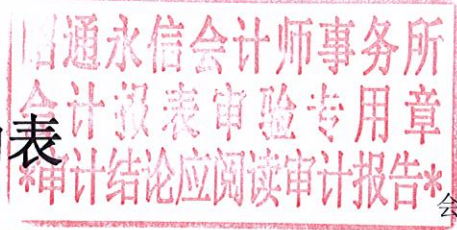 昭通永信会计师事务所
会计报表审验专用章
动表
*审计结论应阅读审计报告*
会